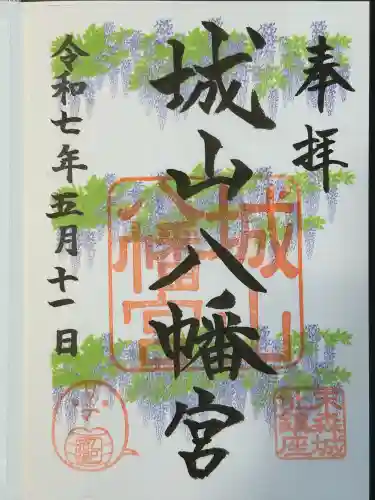 奉拝
城山八幡宮
令和七年五月十一日
城山
八幡宮
末森城
址鎮座